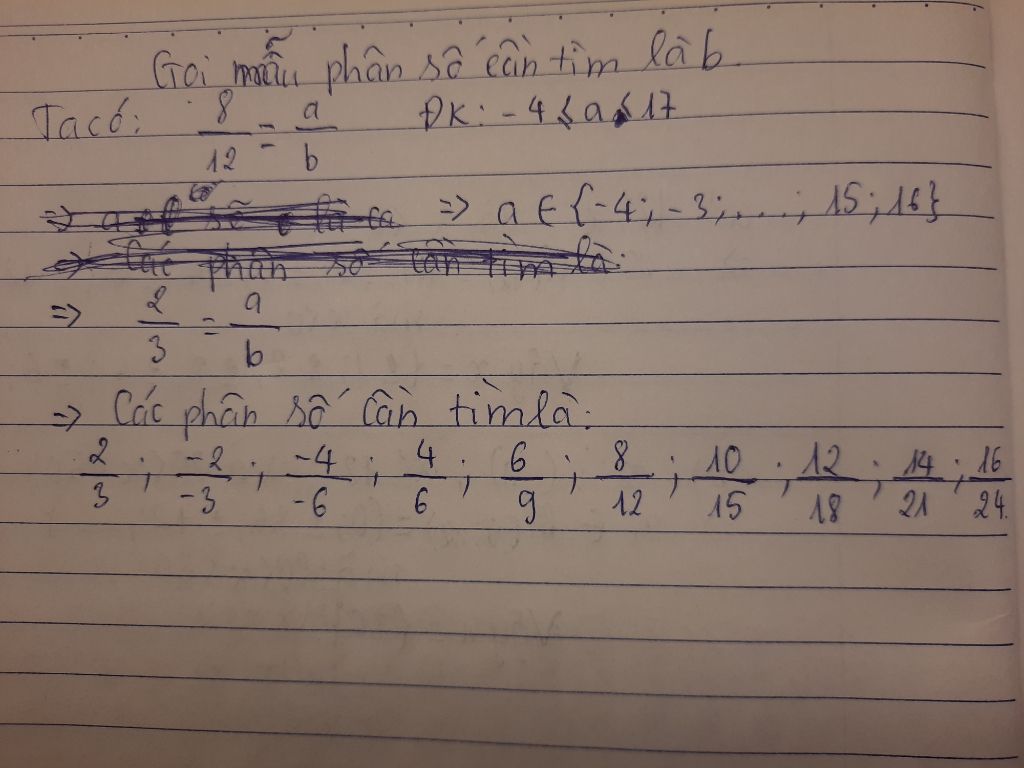 Gọi mẫu phân số cần tìm là b.
Ta có: 8/12 = a/b ĐK: -4 ≤ a < 17
=> a ∈ {-4; -3; ....; 15; 16}
=> Các phân số cần tìm là:
=> 2/3 = a/b
=> Các phân số cần tìm là:
2/3 ; -2/-3 ; -4/-6 ; 4/6 ; 6/9 ; 8/12 ; 10/15 ; 12/18 ; 14/21 ; 16/24.